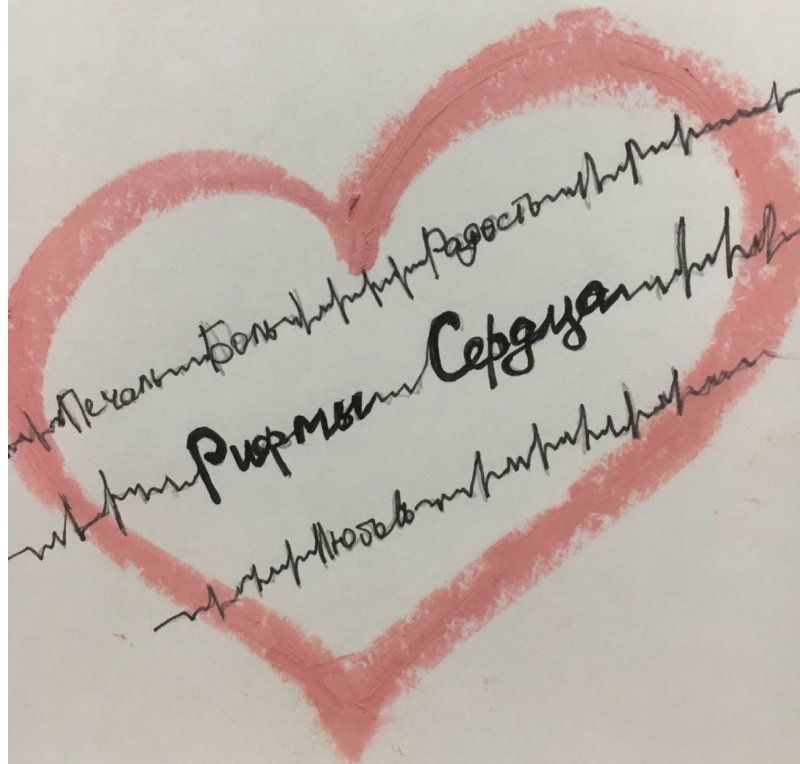 Печаль Боль Радость
Рифмы Сердца
Любовь